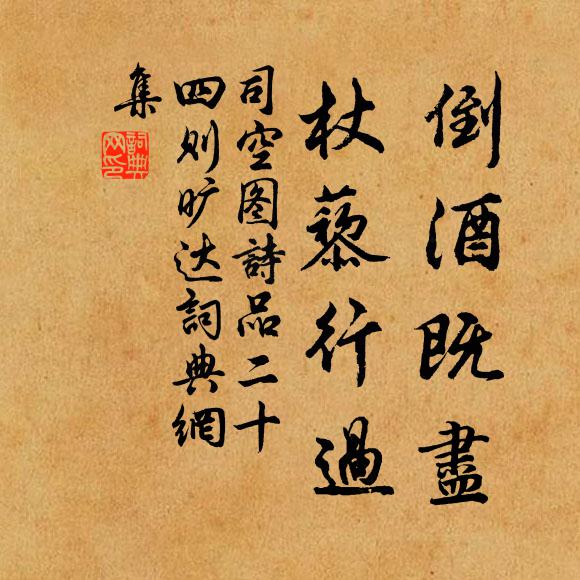 倒酒既盡
杖藜行過
司空图詩品二十
四则旷达詞典網
集
詞典
网印